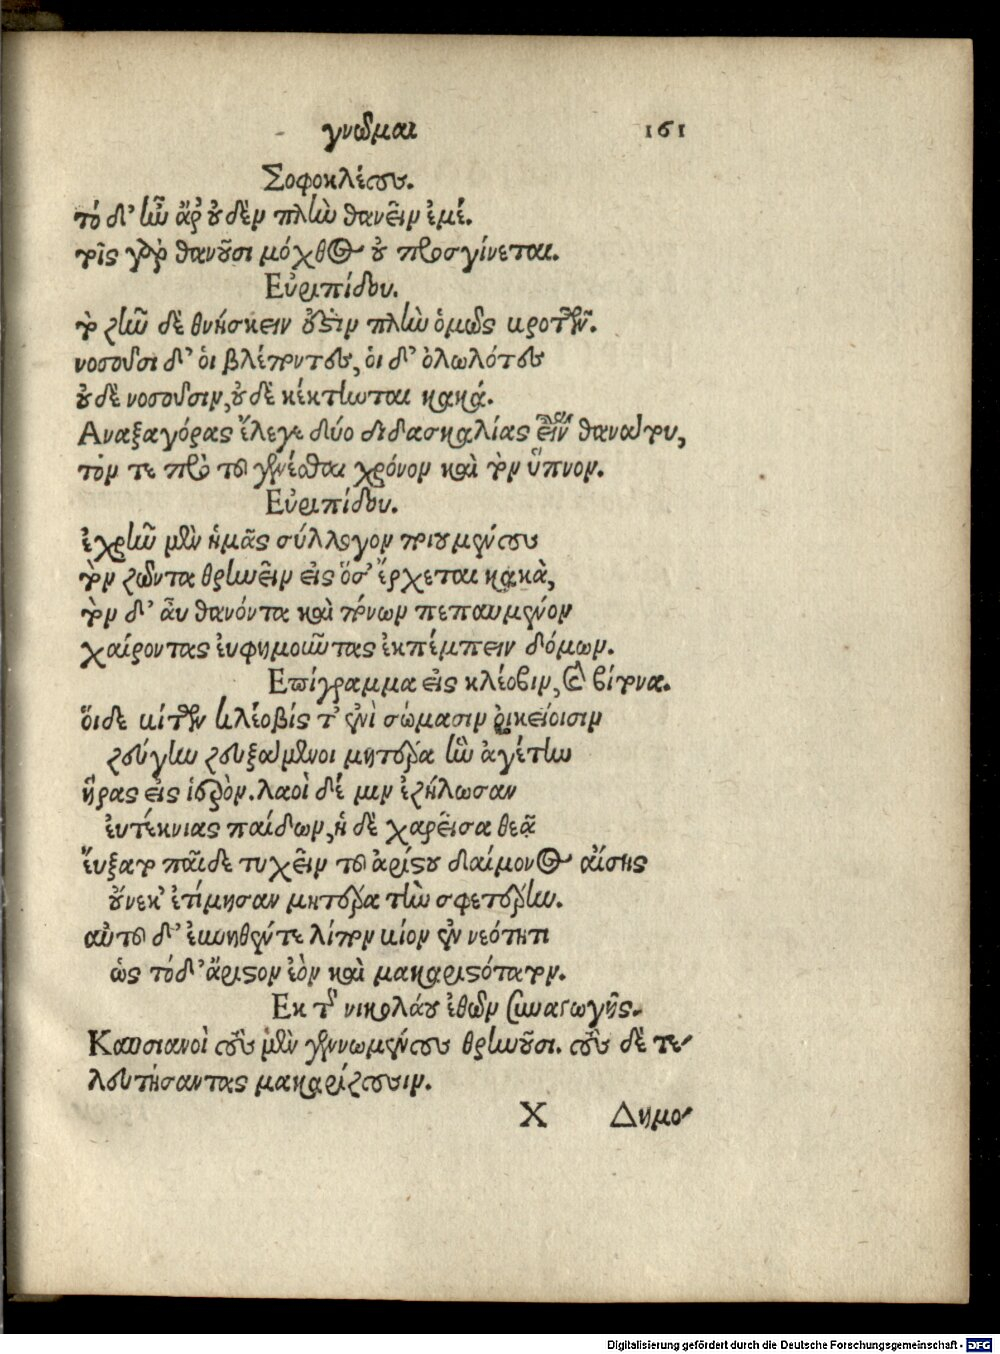 γνῶμαι 161
Σοφοκλέους.
τό δ' ἦν ἄρ' οὐδὲν πλὴν θανεῖν ἐμέ.
τοῖς γὰρ θανοῦσι μόχθος οὐ προσγίνεται.
Εὐριπίδου.
τὸ ζῆν δὲ θνήσκειν ἐστὶν πλὴν ὁμῶς βροτῶν.
νοσοῦσι δ' ὁι βλέποντες, ὁι δ' ὀλωλότες
οὐδὲν νοσοῦσιν, οὐδὲ κέκτηνται κακά.
Αναξαγόρας ἔλεγε δύο διδασκαλίας εἶναι θανάτου,
τόν τε πρὸ τοῦ γενέσθαι χρόνον καὶ τὸν ὕπνον.
Εὐριπίδου.
ἐχρῆν μὲν ἡμᾶς σύλλογον ποιουμένους
τὸν ζῶντα θρηνεῖν εἰς ὅσ' ἔρχεται κακὰ,
τὸν δ' ἀυ θανόντα καὶ πόνων πεπαυμένον
χαίροντας ἐυφημοῦντας ἐκπέμπειν δόμων.
Επίγραμμα εἰς κλέοβιν, καὶ βίτωνα.
ὅιδε βίτων κλέοβίς τ' ἐνὶ σώμασιν οἰκείοισιν
ζεύγλην ζευξάμενοι μητέρα ἣν ἀγέτην
ἥρας εἰς ἱερὸν. λαοὶ δέ μιν ἐζήλωσαν
ἐυτέκνιας παίδων, ἡ δὲ χαρεῖσα θεᾷ
ἔυξατο παῖδε τυχεῖν τοῦ ἀρίστου δαίμονος αἴσης
οὕνεκ' ἐτίμησαν μητέρα τὴν σφετέρην.
αὐτοῦ δ' ἐυνηθέντε λίπον βίον ἐν νεότητι
ὡς τόδ' ἄριστον ἐὸν καὶ μακαριστότατον.
Εκ τῶν νικολάου ἐθῶν συναγωγῆς.
Καυσιανοὶ τοὺς μὲν γεννωμένους θρηνοῦσι. τοὺς δὲ τε-
λευτήσαντας μακαρίζουσιν.
X Δημο-
Digitalisierung gefördert durch die Deutsche Forschungsgemeinschaft - DFG